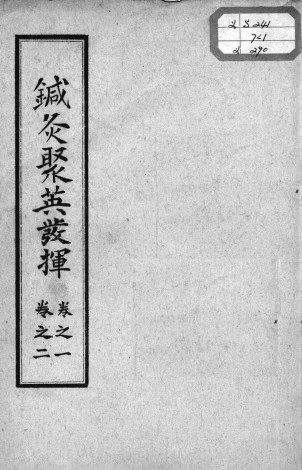 鍼灸聚英發揮
卷之一
卷之二
2 S 241
741
2 290